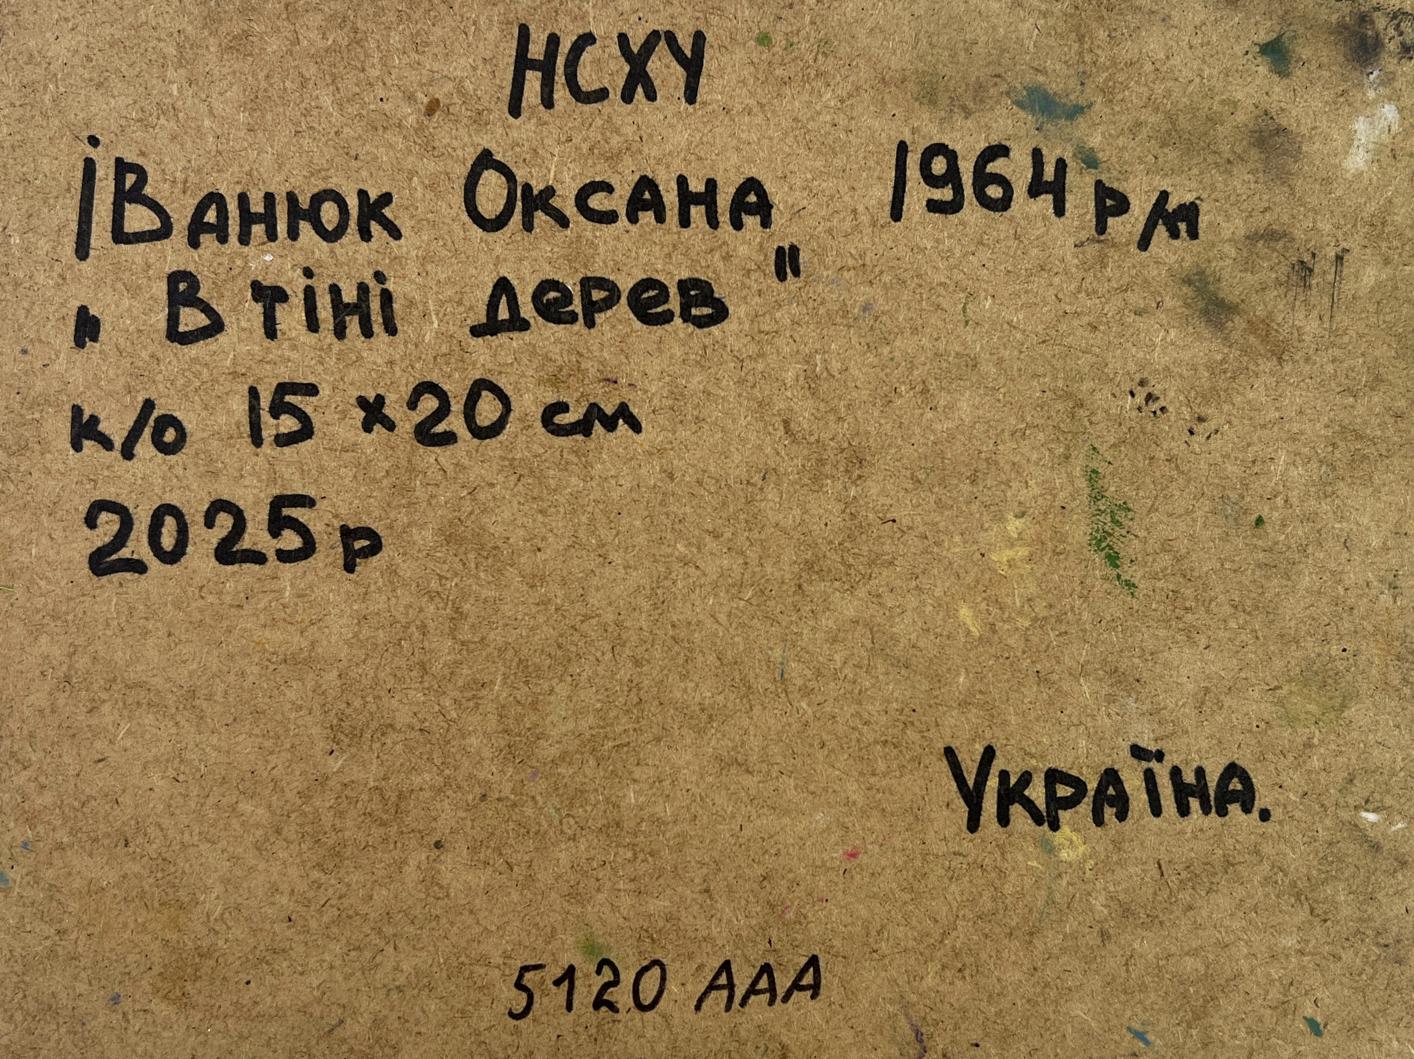 НСХУ
Іванюк Оксана 1964 р/н
„ В тіні дерев "
к/о 15 × 20 см
2025 р
Україна.
5120 ААА